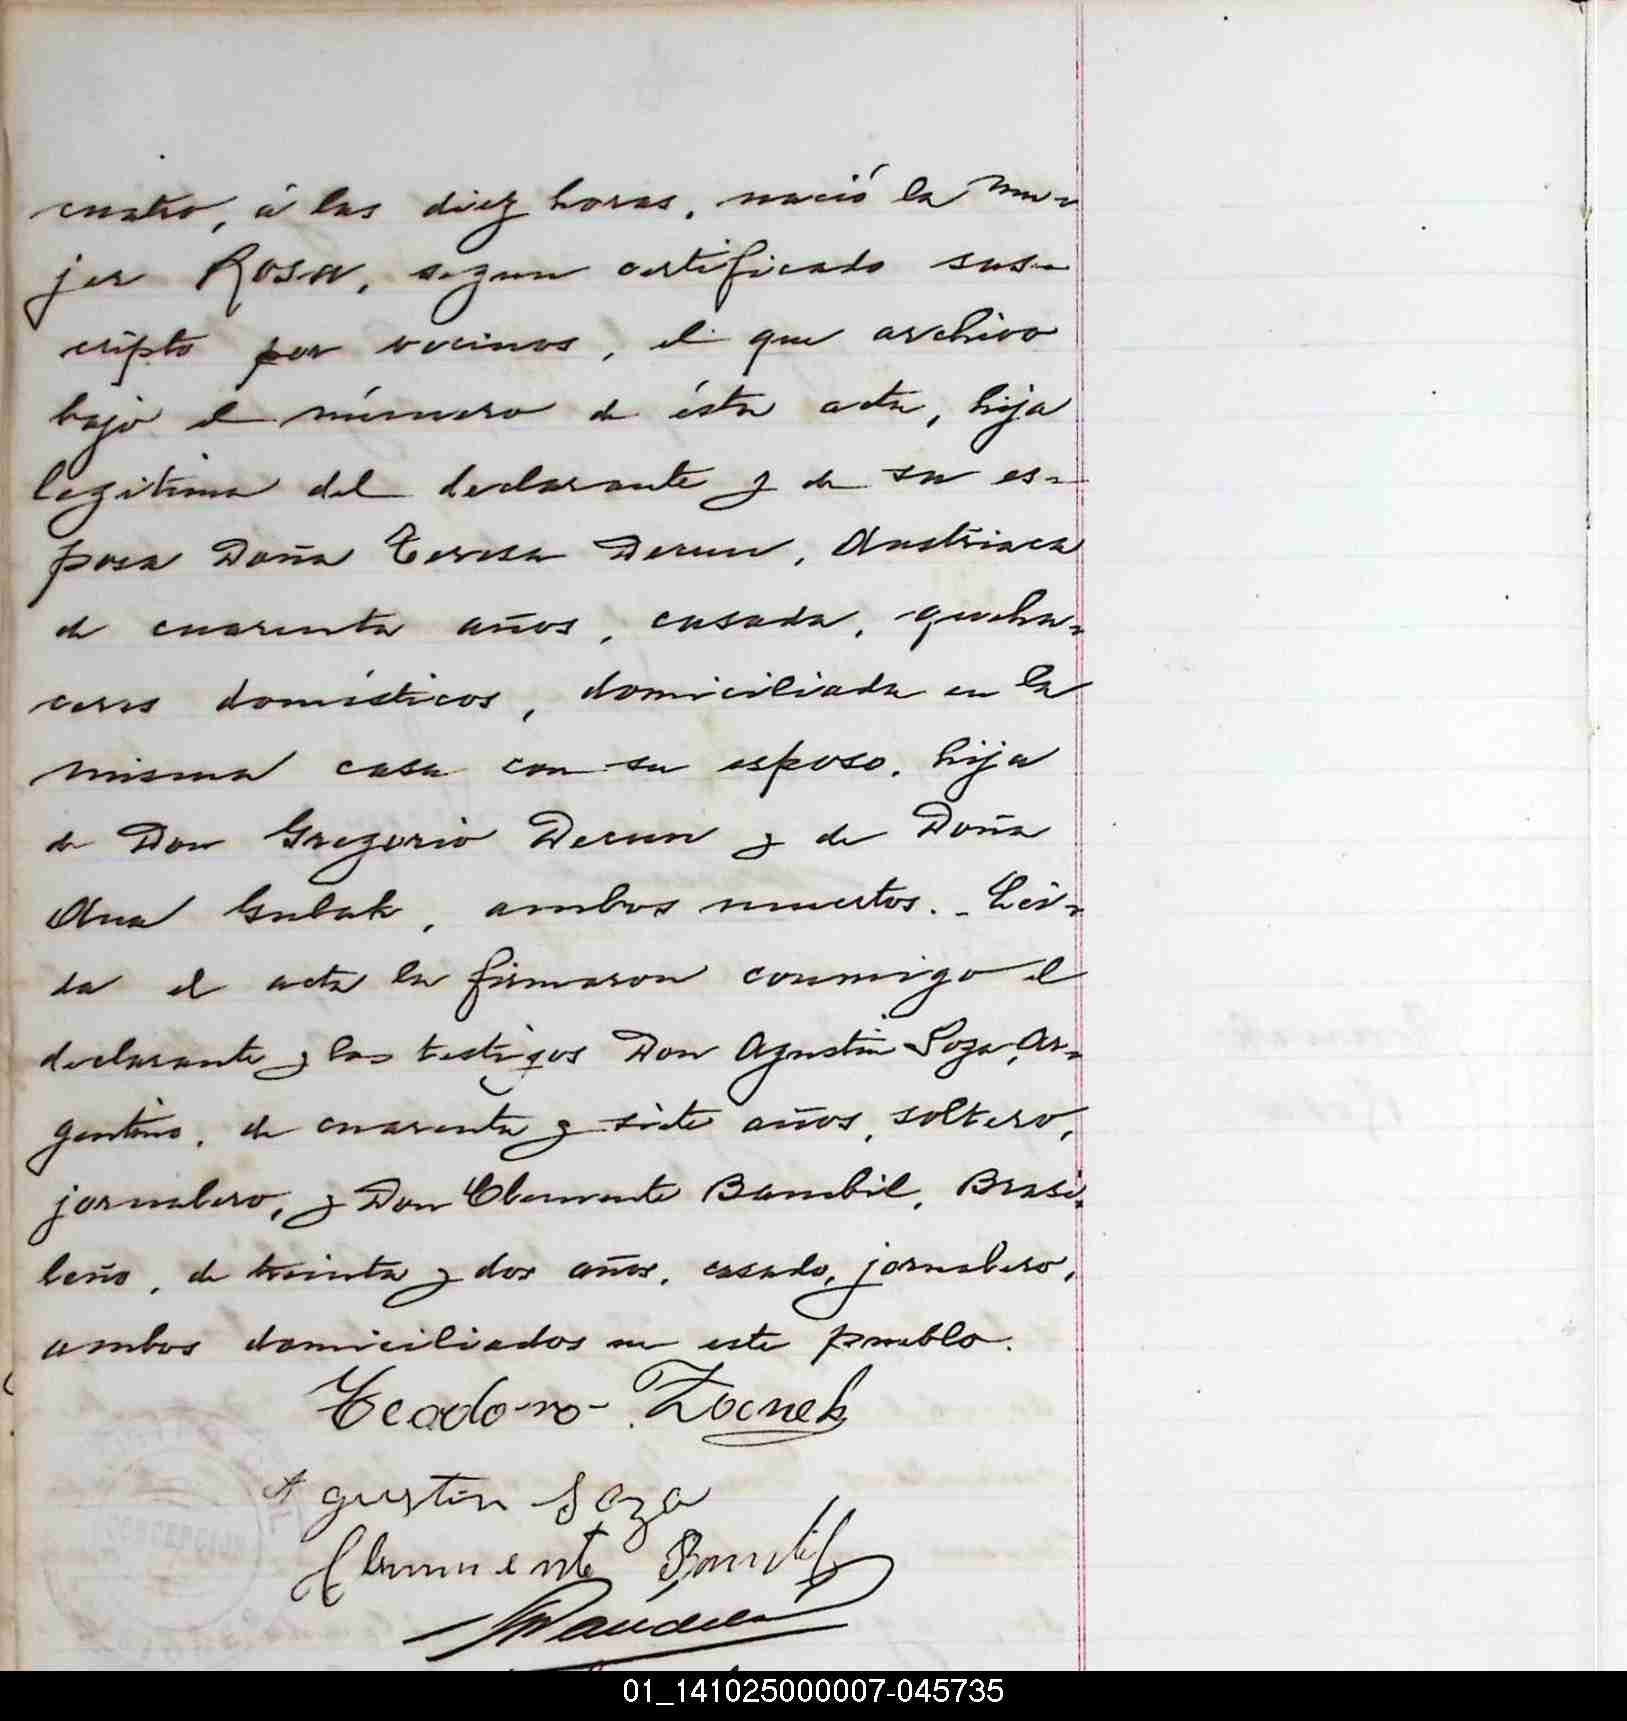 cuatro, á las diez horas, nació la mu-
jer Rosa, segun certificado sus-
cripto por vecinos, el que archivo
bajo el número de ésta acta, hija
legitima del declarante y de su es-
posa Doña Teresa Derun, Austriaca
de cuarenta años, casada, queha-
ceres domésticos, domiciliada en la
misma casa con su esposo, hija
de Don Gregorio Derun y de Doña
Ana Gulak, ambos muertos. - Leí-
da el acta la firmaron conmigo el
declarante y los testigos Don Agustin Soza, Ar-
gentino, de cuarenta y siete años, soltero,
jornalero, y Don Clemente Bambil, Brasi-
leño, de treinta y dos años, casado, jornalero,
ambos domiciliados en este pueblo.
Teodoro
Agustin Soza
Clemente
01_141025000007-045735